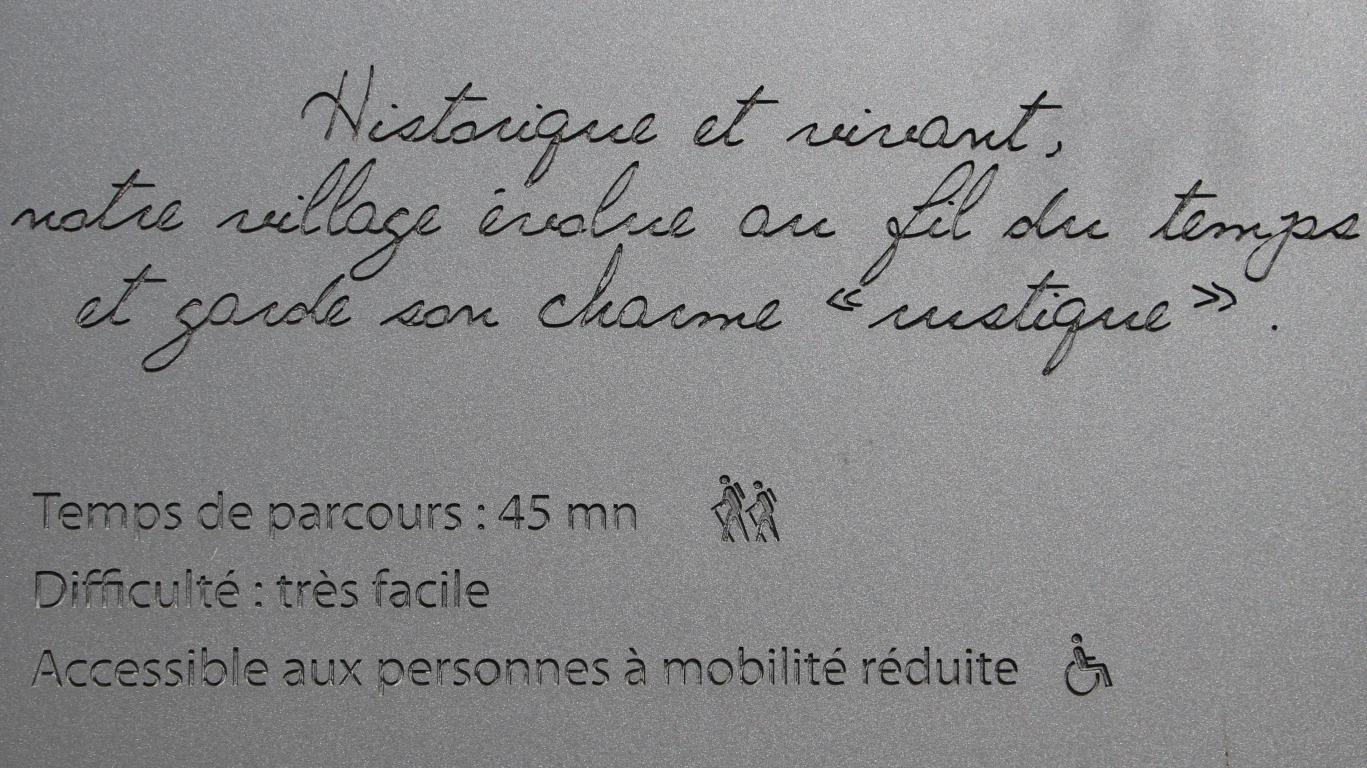 Historique et vivant,
notre village évolue au fil du temps
et garde son charme « rustique » .
Temps de parcours : 45 mn
Difficulté : très facile
Accessible aux personnes à mobilité réduite